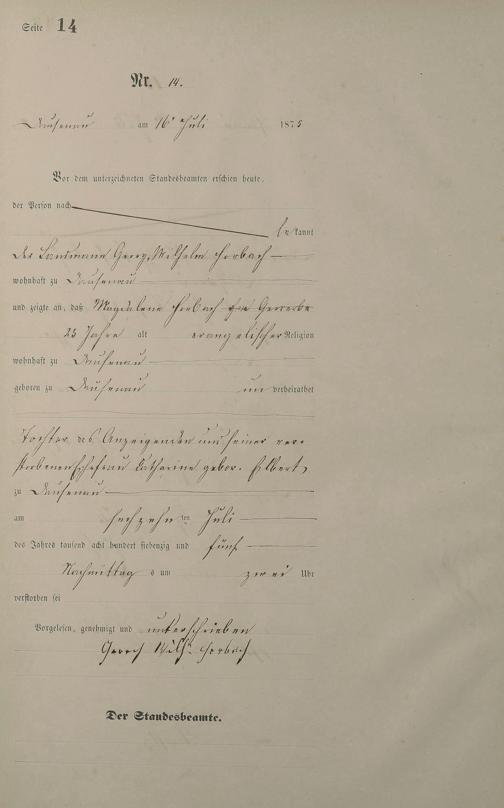 Seite 14
Nr. 14.
Dausenau am 16n Juli 1875
Vor dem unterzeichneten Standesbeamten erschien heute,
der Person nach
bekannt
der Landmann Georg Wilhelm Horbach
wohnhaft zu Dausenau
und zeigte an, daß Magdalena Horbach Gewerbe
25 Jahre alt evangelischer Religion
wohnhaft zu Dausenau
geboren zu Dausenau un verheirathet
Tochter des Anzeigenden und seiner ver-
storbenen Ehefrau Catharine gebor. Elbert,
zu Dausenau
am sechzehn ten Juli
des Jahres tausend acht hundert siebenzig und fünf
Nachmittag s um zwei Uhr
verstorben sei
Vorgelesen, genehmigt und unterschrieben
Georg Wilh. Horbach
Der Standesbeamte.